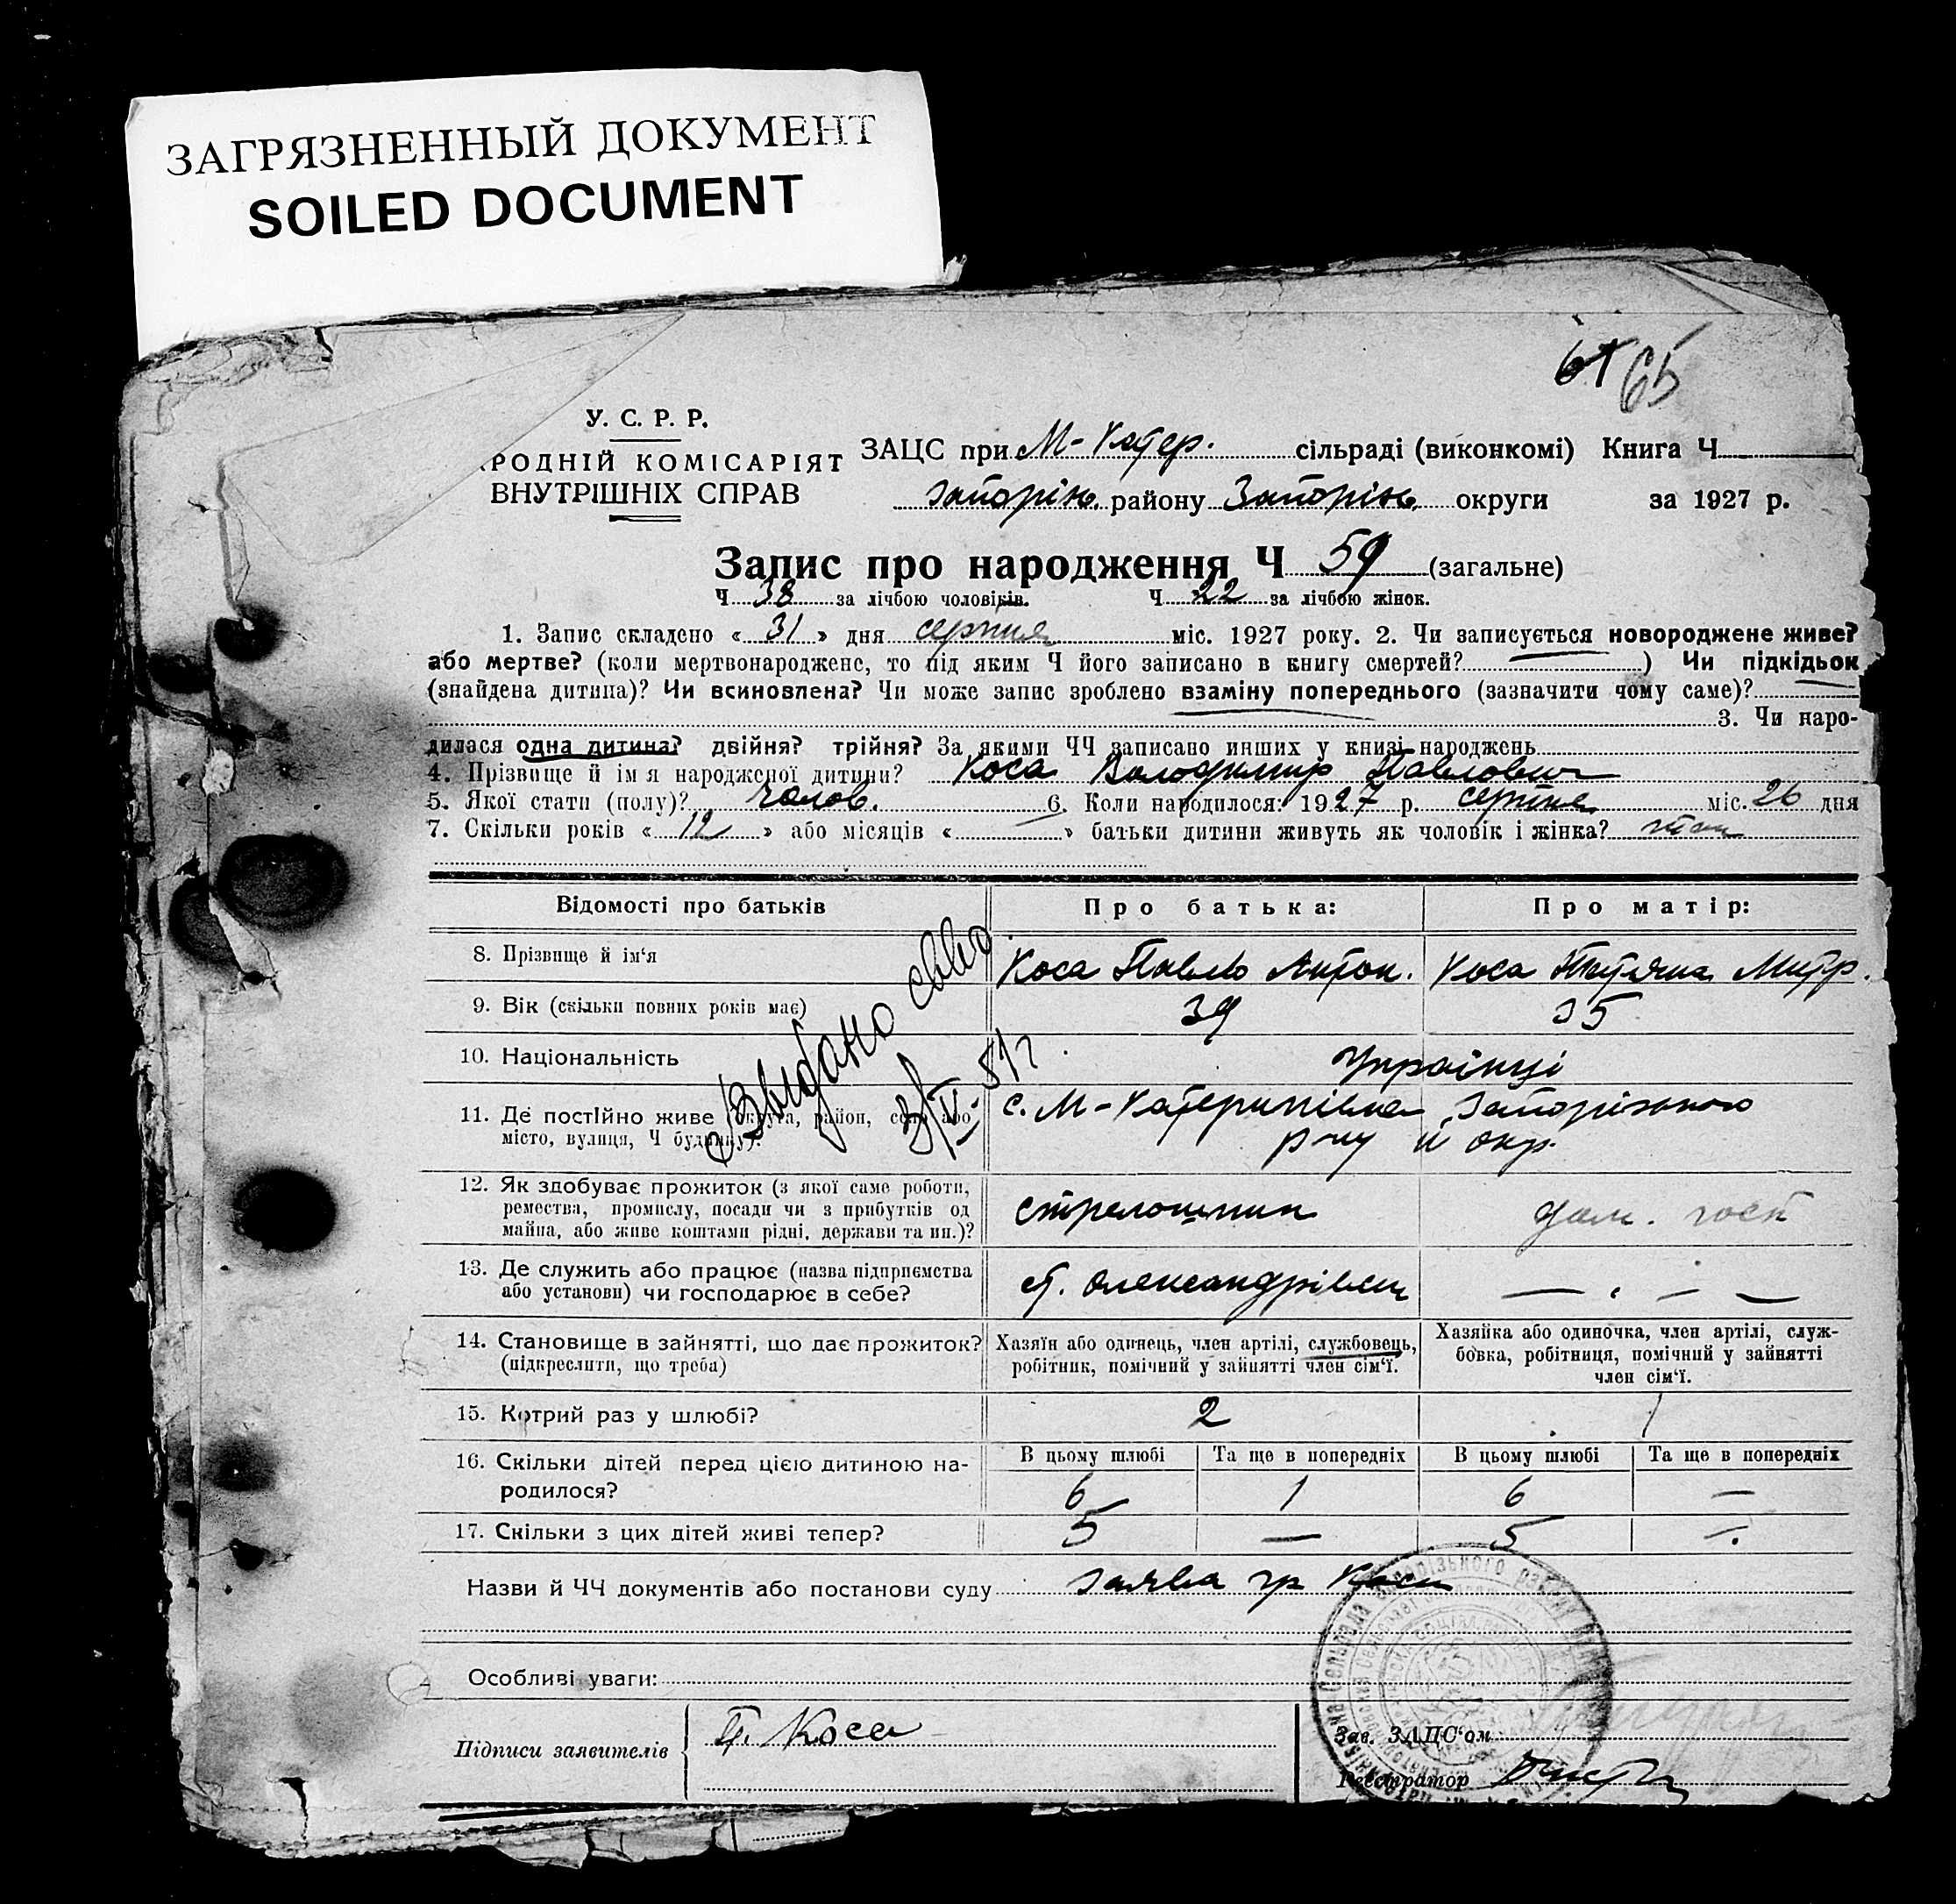 ЗАГРЯЗНЕННЫЙ ДОКУМЕНТ
SOILED DOCUMENT
65
У. С. Р. Р.
РОДНІЙ КОМІСАРІЯТ
ВНУТРІШНІХ СПРАВ
ЗАЦС при М-Катер. сільраді (виконкомі) Книга Ч
Запоріж. району Запоріж. округи за 1927 р.
Запис про народження Ч 59 (загальне)
Ч 38 за лічбою чоловіків. Ч 22 за лічбою жінок.
1. Запис складено « 31 » дня серпня міс. 1927 року. 2. Чи записується новороджене живе?
або мертве? (коли мертвонароджене, то під яким Ч його записано в книгу смертей? ) Чи підкідьок
(знайдена дитина)? Чи всиновлена? Чи може запис зроблено взаміну попереднього (зазначити чому саме)?
3. Чи наро-
дилася одна дитина? двійня? трійня? За якими ЧЧ записано инших у книзі народжень
4. Прізвище й ім я народженої дитини? Коса Володимир Павлович
5. Якої стати (полу)? чолов. 6. Коли народилося: 1927 р. серпня міс. 26 дня
7. Скільки років « 12 » або місяців « — » батьки дитини живуть як чоловік і жінка? так
Відомості про батьків Про батька: Про матір:
8. Прізвище й ім'я Коса Павло Антон. Коса Тетяна Митр.
9. Вік (скільки повних років має) 39 35
10. Національність Українці
11. Де постійно живе (округа, район, село або с. М-Катеринівка Запорізького
місто, вулиця, Ч будинку)? р-ну й окр.
Выдано свво
12. Як здобуває прожиток (з якої саме роботи,
ремества, промислу, посади чи з прибутків од стрелошник дом. госп
майна, або живе коштами рідні, держави та ин.)?
13. Де служить або працює (назва підприємства ст. Олександрівськ — . — —
або установи) чи господарює в себе?
14. Становище в зайнятті, що дає прожиток? Хазяїн або одинець, член артілі, службовець, Хазяйка або одиночка, член артілі, служ-
(підкреслити, що треба) робітник, помічний у зайнятті член сім'ї. бовка, робітниця, помічний у зайнятті
член сім'ї.
15. Котрий раз у шлюбі? 2 1
16. Скільки дітей перед цією дитиною на- В цьому шлюбі Та ще в попередніх В цьому шлюбі Та ще в попередніх
родилося? 6 1 6 —
17. Скільки з цих дітей живі тепер? 5 — 5 —
Назви й ЧЧ документів або постанови суду заява гр Коси
Особливі уваги:
Підписи заявителів П. Коса
Зав. ЗАЦС'ом
Реєстратор